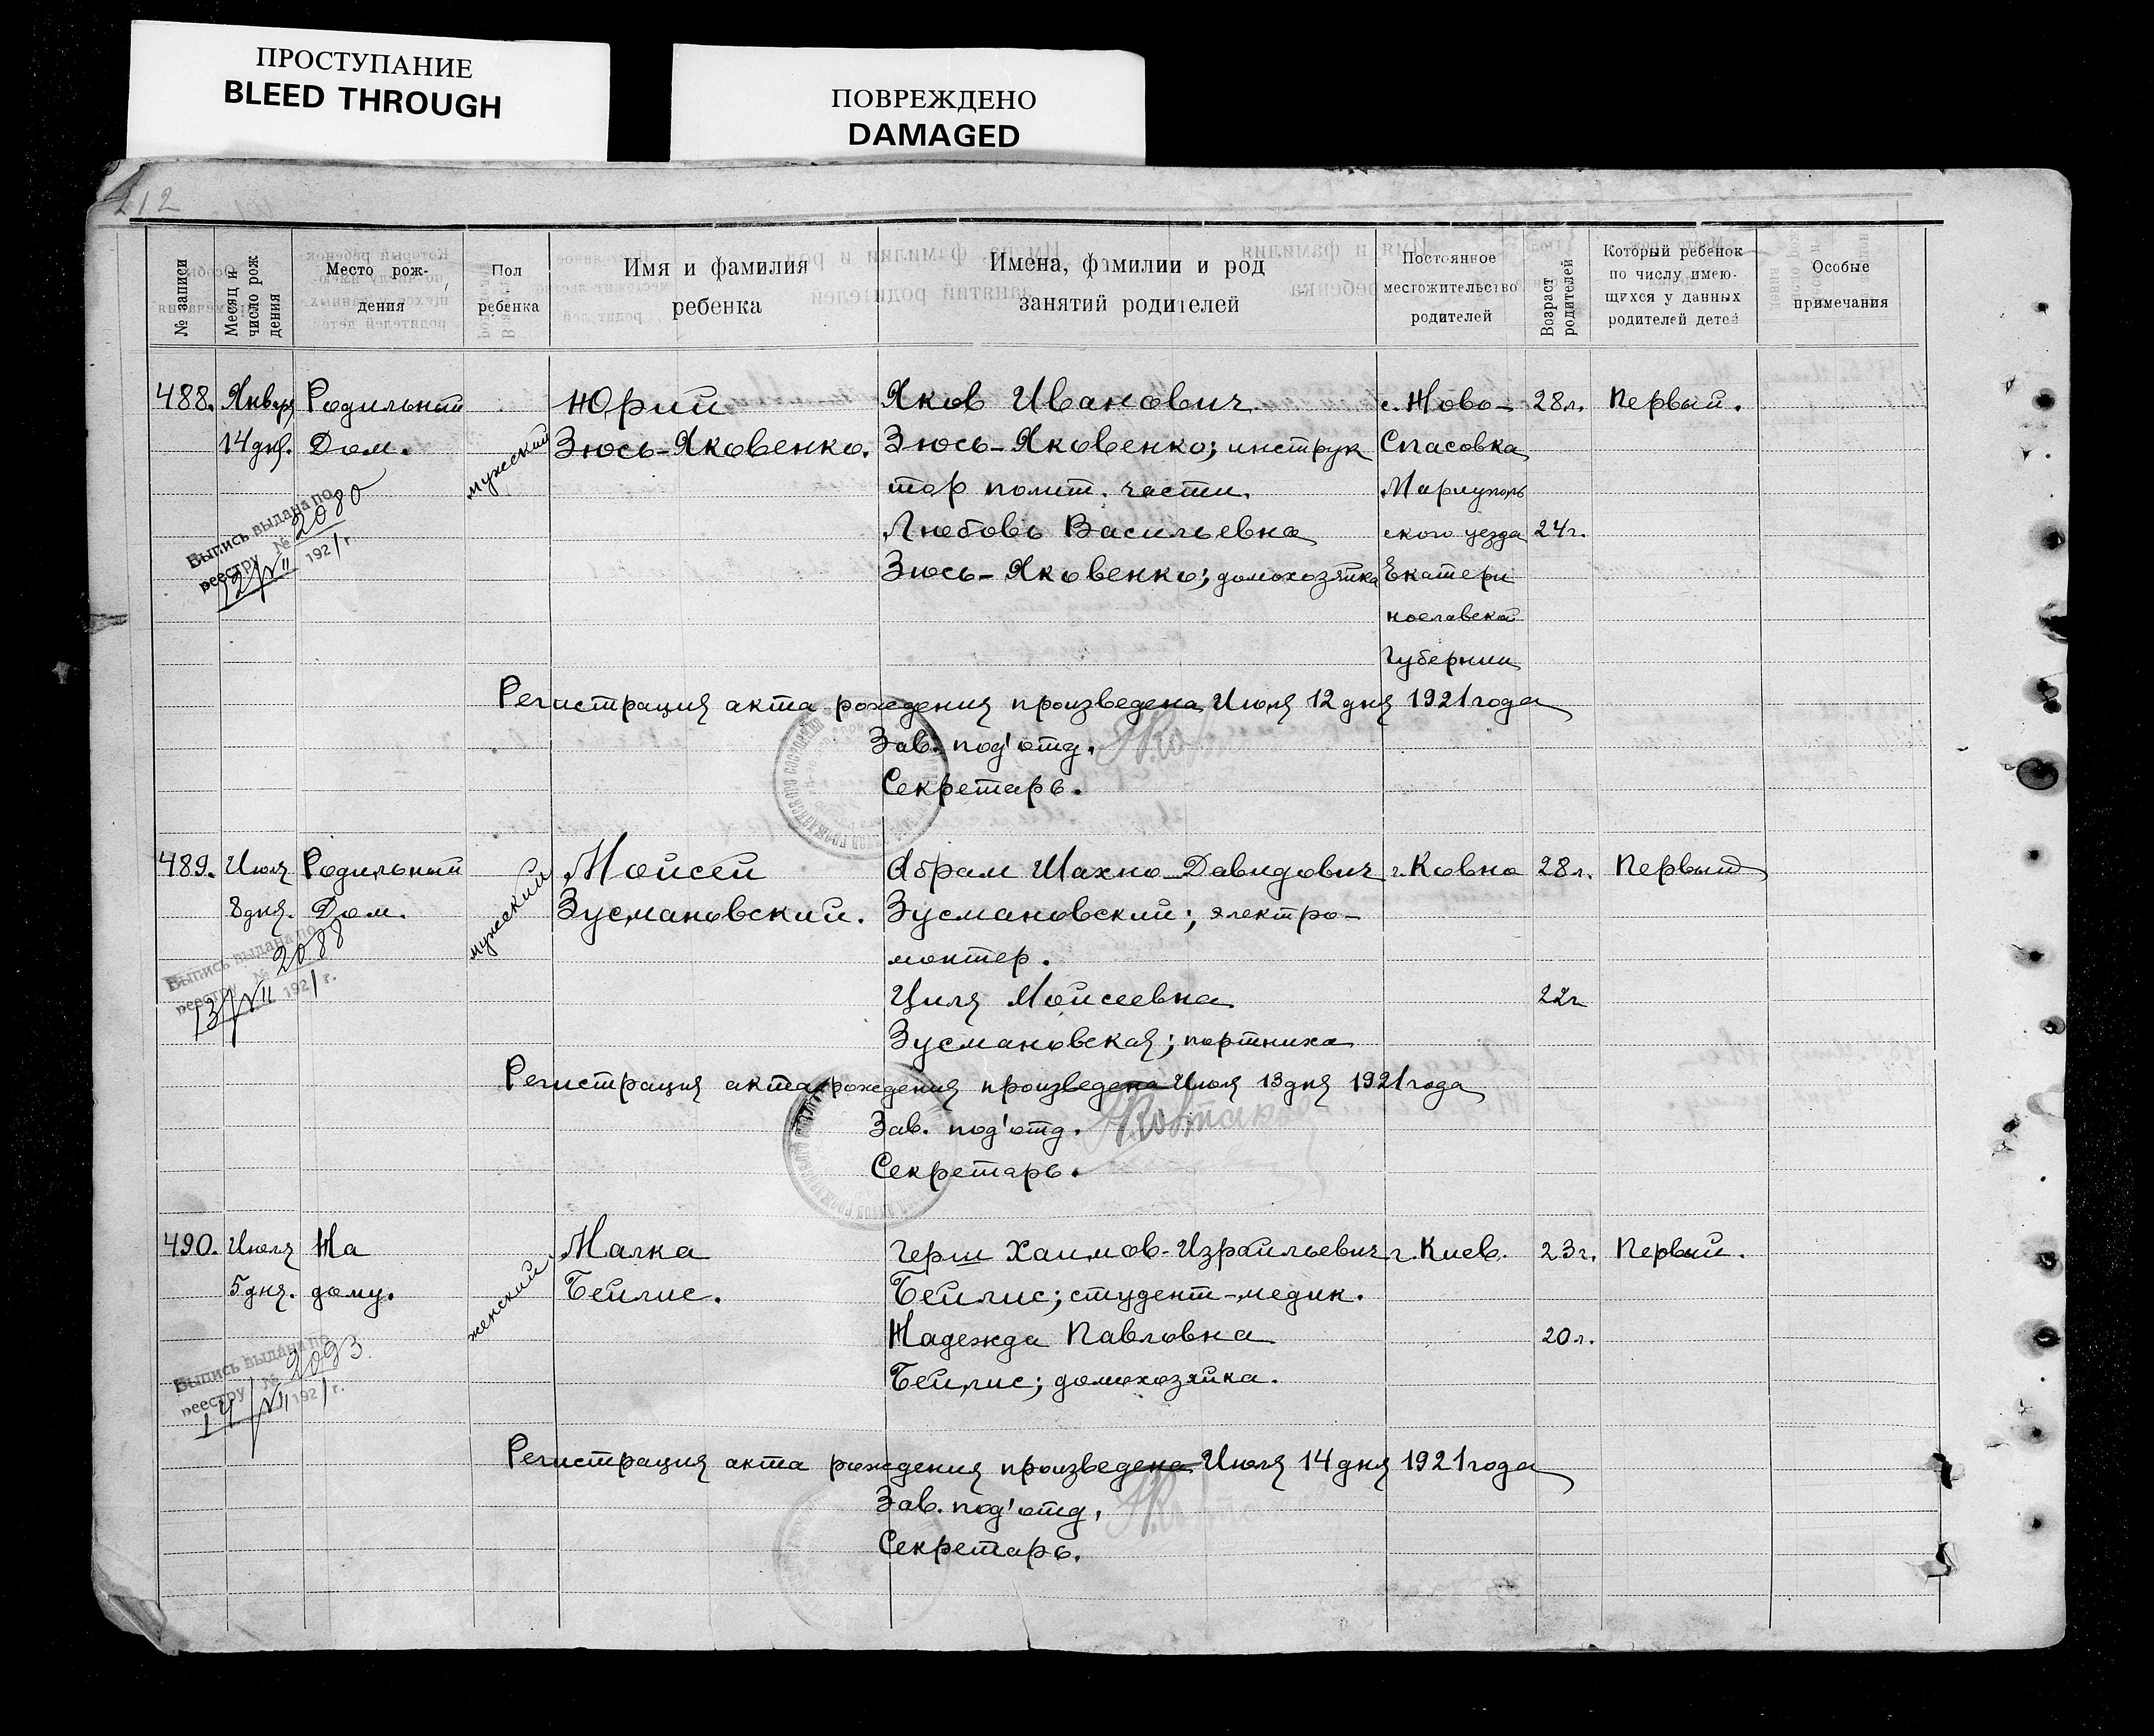 ПРОСТУПАНИЕ
BLEED THROUGH
ПОВРЕЖДЕНО
DAMAGED
№ записи
Месяц и число рождения
Место рож-
дения
Пол
ребенка
Имя и фамилия
ребенка
Имена, фамилии и род
занятий родителей
Постоянное
местожительство
родителей
Возраст
родителей
Который ребенок
по числу имею-
щихся у данных
родителей детей
Особые
примечания
488. Января Родильный мужский Юрий Яков Иванович с. Ново- 28 л. Первый.
14 дня. Дом. Зюсь-Яковенко. Зюсь-Яковенко; инструк Спасовка
тор полит. части. Мариуполь
Любовь Васильевна ского уезда 24 г.
Зюсь-Яковенко; домохозяйка Екатери
нославской
губернии
Выпись выдана по
реестру № 2080
12/VII 1921 г.
Регистрация акта рождения произведена Июля 12 дня 1921 года
Зав. под'отд.
Секретарь.
489. Июля Родильный мужский Мойсей Абрам Шахно-Давидович г. Ковно 28 л. Первый
8 дня. Дом. Зусмановский. Зусмановский; электро-
монтер.
Циля Мойсеевна 22 г
Зусмановская; портниха
Выпись выдана по
реестру № 2088
13/VII 1921 г.
Регистрация акта рождения произведена Июля 13 дня 1921 года
Зав. под'отд.
Секретарь.
490. Июля На женский Малка Герш Хаимов-Израильевич г. Киев. 23 г. Первый.
5 дня. дому. Бейлис. Бейлис; студент-медик.
Надежда Павловна 20 л.
Бейлис; домохозяйка.
Выпись выдана по
реестру № 2093
14/VII 1921 г.
Регистрация акта рождения произведена Июля 14 дня 1921 года
Зав. под'отд.
Секретарь.